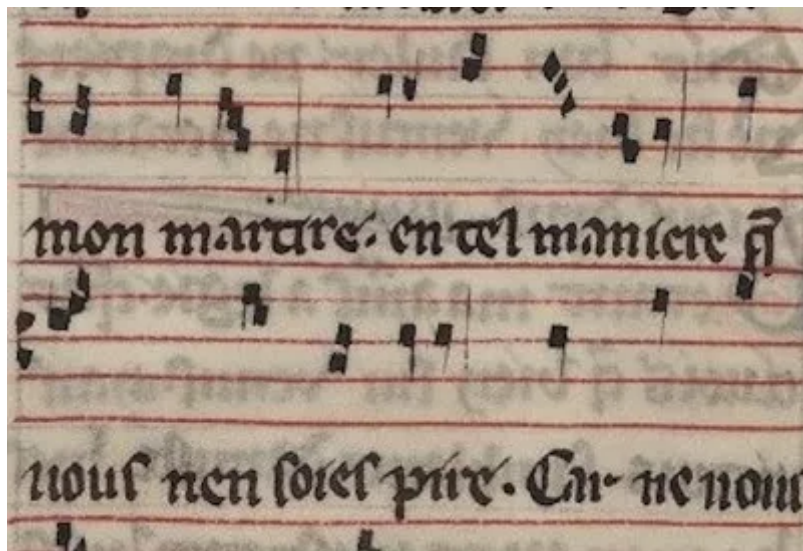 mon martire. en tel maniere q̄
uous nen soies pire. Car ne uous